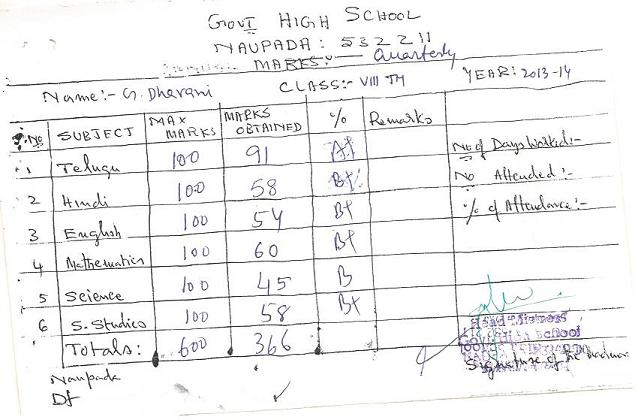 GOVT HIGH SCHOOL
NAUPADA: 532211
MARKS:- Quarterly
Name:- G. Dharani CLASS:- VIII TH YEAR: 2013-14
S.No SUBJECT MAX MARKS MARKS OBTAINED % Remarks
1 Telugu 100 91 A+
2 Hindi 100 58 B+
3 English 100 54 B+
4 Mathematics 100 60 B+
5 Science 100 45 B
6 S. Studies 100 58 B+
Totals: 600 366
No of Days Worked:-
No Attended:-
% of Attendance:-
Head Mistress
Govt High School
Signature of the
Naupada
Dt